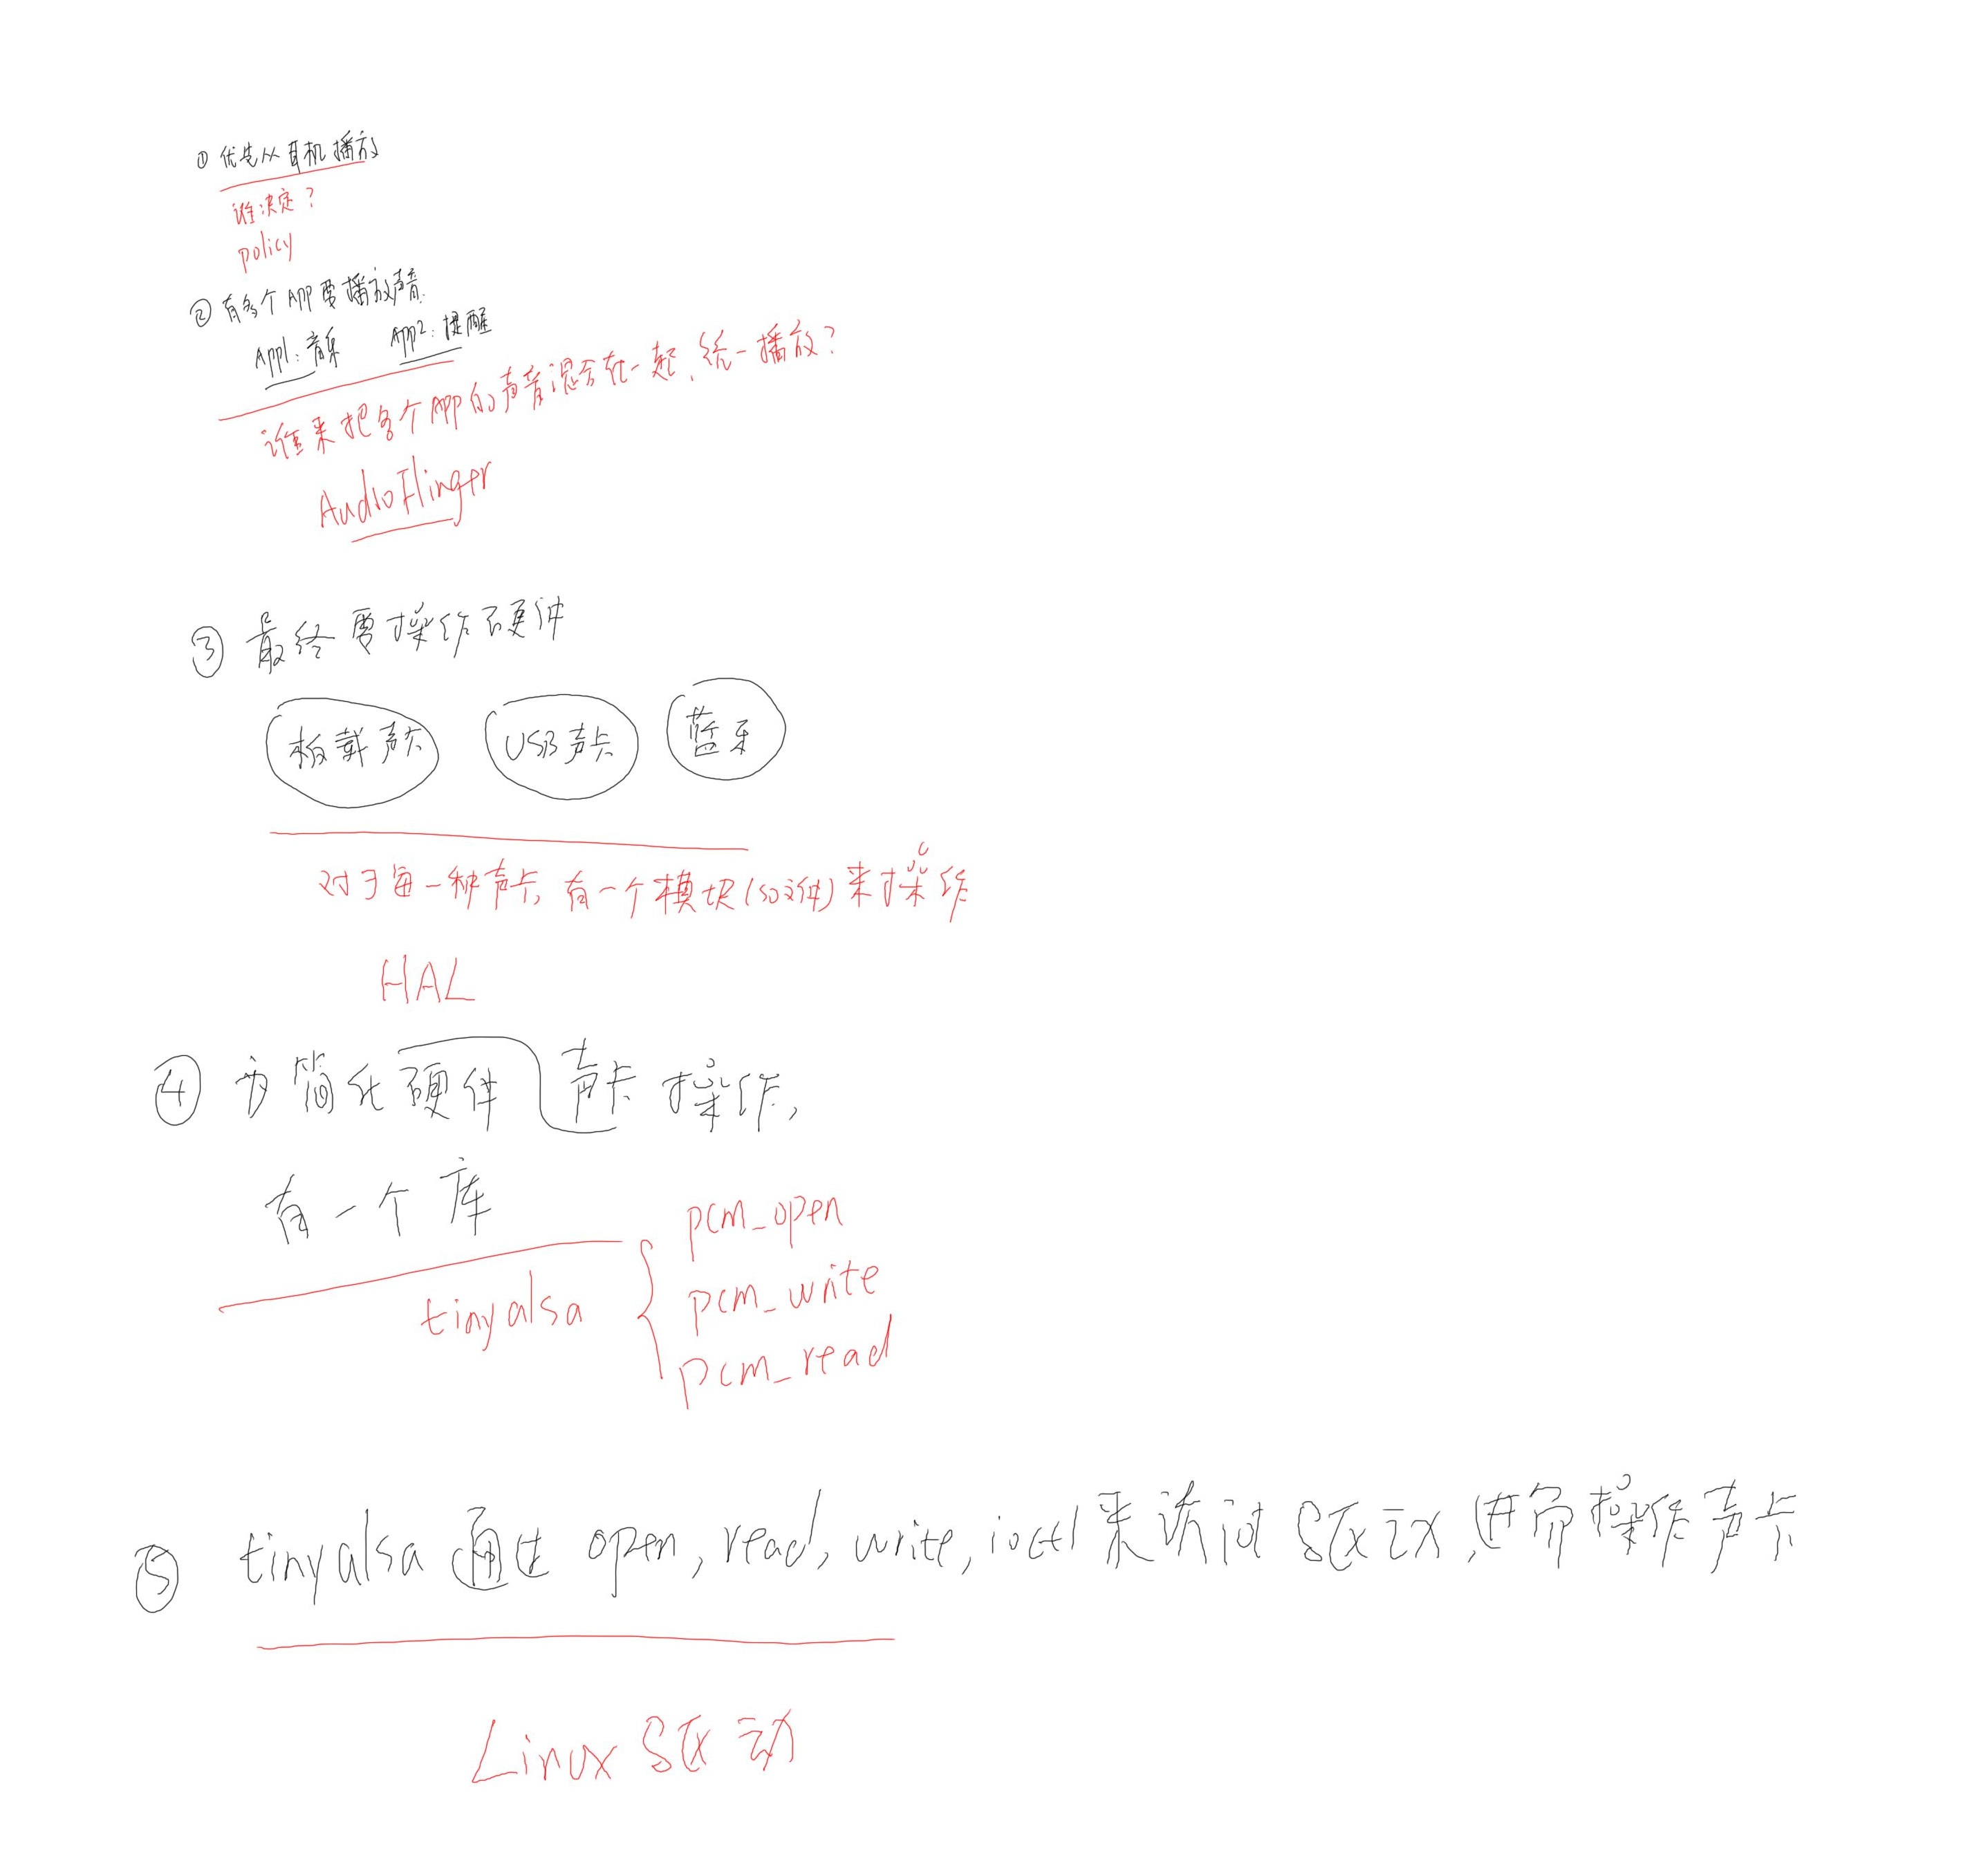 ① 优先从耳机播放
谁决定?
policy
② 有多个APP要播放声音.
App1: 音乐 App2: 提醒
谁来把各个APP的声音混合在一起, 统一播放?
AudioFlinger
③ 最终要操作硬件
板载声卡 USB声卡 蓝牙
对于每一种声卡, 有一个模块(so文件)来操作
HAL
④ 为简化硬件声卡操作,
有一个库
tinyalsa
pcm_open
pcm_write
pcm_read
⑤ tinyalsa 通过 open, read, write, ioctl 来访问驱动, 进而操作声卡
Linux 驱动